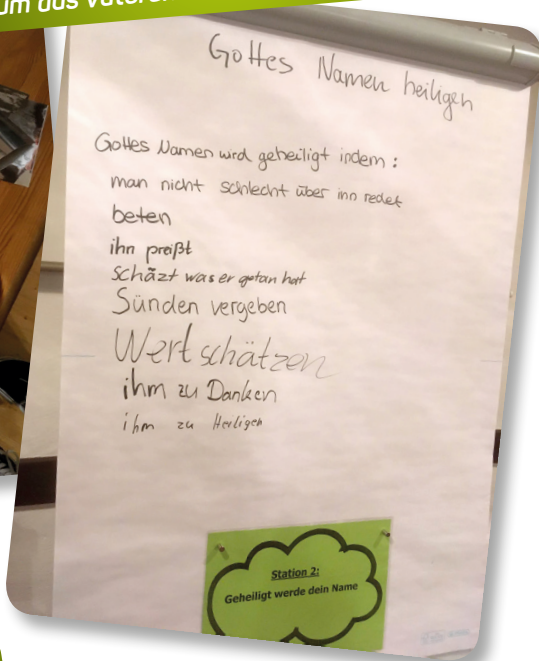 um das Vateru
Gottes Namen heiligen
Gottes Namen wird geheiligt indem :
man nicht schlecht über inn redet
beten
ihn preißt
schäzt was er getan hat
Sünden vergeben
Wert schätzen
ihm zu Danken
ihm zu Heiligen
Station 2:
Geheiligt werde dein Name